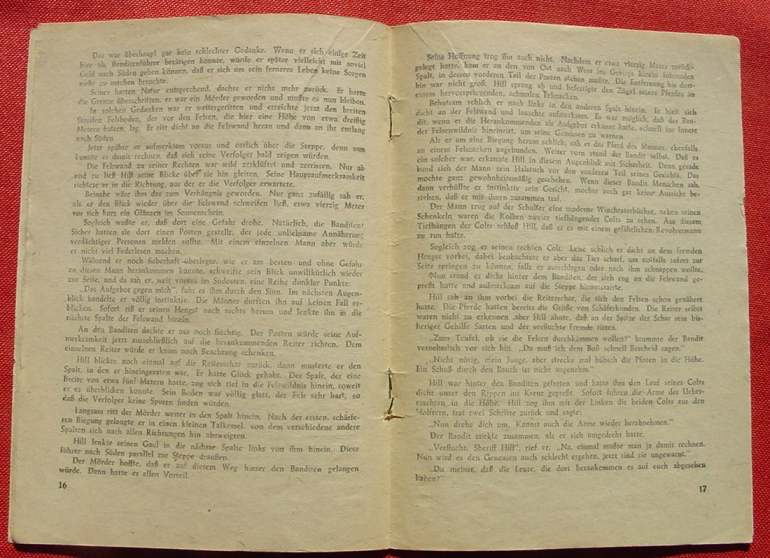 Das war überhaupt gar kein schlechter Gedanke. Wenn er sich einige Zeit
hier als Banditenführer betätigen konnte, würde er später vielleicht mit soviel
Geld nach Süden gehen können, daß er sich um sein ferneres Leben keine Sorgen
mehr zu machen brauchte.
Seiner harten Natur entsprechend, dachte er nicht mehr zurück. Er hatte
die Grenze überschritten, er war ein Mörder geworden und mußte es nun bleiben.
In solchen Gedanken war er weitergeritten und erreichte jetzt den breiten
Felsboden, der vor den Felsen, die hier eine Höhe von etwa dreißig
Metern hatten, lag. Er ritt dicht an die Felswand heran und dann an ihr entlang
nach Süden.
Jetzt spähte er aufmerksam voraus und seitlich über die Steppe, denn nun
konnte er damit rechnen, daß sich seine Verfolger bald zeigen würden.
Die Felswand zu seiner Rechten war wild zerklüftet und zerrissen. Nur ab
und zu ließ Hill seine Blicke über sie hin gleiten. Seine Hauptaufmerksamkeit
richtete er in die Richtung, aus der er die Verfolger erwartete.
Beinahe wäre ihm das zum Verhängnis geworden. Nur ganz zufällig sah er,
als er den Blick wieder über die Felswand schweifen ließ, etwa vierzig Meter
vor sich kurz ein Glänzen im Sonnenschein.
Sogleich wußte er, daß dort eine Gefahr drohe. Natürlich, die Banditen!
Sicher hatten sie dort einen Posten gestellt, der jede unliebsame Annäherung
verdächtiger Personen melden sollte. Mit einem einzelnen Mann aber würde
er nicht viel Federlesen machen.
Während er noch fieberhaft überlegte, wie er am besten und ohne Gefahr
an diesen Mann herankommen konnte, schweifte sein Blick unwillkürlich wieder
zur Seite, und da sah er, weit voraus im Südosten, eine Reihe dunkler Punkte.
"Das Aufgebot gegen mich", fuhr es ihm durch den Sinn. Im nächsten Augen-
blick handelte er völlig instinktiv. Die Männer durften ihn auf keinen Fall er-
blicken. Sofort riß er seinen Hengst nach rechts herum und lenkte ihn in die
nächste Spalte der Felswand hinein.
An den Banditen dachte er nur noch flüchtig. Der Posten würde seine Auf-
merksamkeit jetzt ausschließlich auf die herankommenden Reiter richten. Dem
einzelnen Reiter würde er kaum noch Beachtung schenken.
Hill blickte noch einmal auf die Reiterschar zurück, dann musterte er den
Spalt, in den er hineingeraten war. Er hatte Glück gehabt. Der Spalt, der eine
Breite von etwa fünf Metern hatte, zog sich tief in die Felswildnis hinein, soweit
er es überblicken konnte. Sein Boden war völlig glatt, der Fels sehr hart, so
daß die Verfolger keine Spuren finden würden.
Langsam ritt der Mörder weiter in den Spalt hinein. Nach der ersten, schärfe-
ren Biegung gelangte er in einen kleinen Talkessel, von dem verschiedene andere
Spalten sich nach allen Richtungen hin abzweigten.
Hill lenkte seinen Gaul in die nächste Spalte links von ihm hinein. Diese
führte nach Süden parallel zur Steppe draußen.
Der Mörder hoffte, daß er auf diesem Weg hinter den Banditen gelangen
würde. Dann hatte er allen Vorteil.
16
Seine Hoffnung trog ihn auch nicht. Nachdem er etwa vierzig Meter zurück-
gelegt hatte, kam er an den von Ost nach West ins Gebirge hinein führenden
Spalt, in dessen vorderem Teil der Posten stehen mußte. Die Entfernung bis dort-
hin war nicht groß. Hill sprang ab und befestigte den Zügel seines Pferdes an
einem hervorspringenden, schmalen Felszacken.
Behutsam schlich er nach links in den anderen Spalt hinein. Er hielt sich
dicht an der Felswand und lauschte aufmerksam. Es war möglich, daß der Ban-
dit, wenn er die Herankommenden als Aufgebot erkannt hatte, schnell ins Innere
der Felsenwildnis hineinritt, um seine Genossen zu warnen.
Als er um eine Biegung herum schlich, sah er das Pferd des Mannes, ebenfalls
an einem Felszacken angebunden. Weiter vorn stand der Bandit selbst. Daß es
ein solcher war, erkannte Hill in diesem Augenblick mit Sicherheit. Denn gerade
band sich der Mann sein Halstuch vor den vorderen Teil seines Gesichts. Das
mochte ganz gewohnheitsmäßig geschehen. Wenn dieser Bandit Menschen sah,
dann verhüllte er instinktiv sein Gesicht, mochte auch gar keine Aussicht be-
stehen, daß er mit ihnen zusammen traf.
Der Mann trug auf der Schulter eine moderne Winchesterbüchse, neben seinen
Schenkeln waren die Kolben zweier tiefhängender Colts zu sehen. Aus diesem
Tiefhängen der Colts schloß Hill, daß er es mit einem gefährlichen Revolvermann
zu tun hatte.
Sogleich zog er seinen rechten Colt. Leise schlich er dicht an dem fremden
Hengst vorbei, dabei beobachtete er aber das Tier scharf, um notfalls sofort zur
Seite springen zu können, falls es ausschlagen oder nach ihm schnappen wollte.
Nun stand er dicht hinter dem Banditen, der sich eng an die Felswand ge-
preßt hatte und aufmerksam auf die Steppe hinausstarrte.
Hill sah an ihm vorbei die Reiterschar, die sich den Felsen schon genähert
hatte. Die Pferde hatten bereits die Größe von Schäferhunden. Die Reiter selbst
waren nicht zu erkennen, aber Hill ahnte, daß an der Spitze der Schar sein bis-
heriger Gehilfe Sutton und der verfluchte Fremde ritten.
"Zum Teufel, ob sie die Felsen durchkämmen wollen?" brummte der Bandit
vernehmlich vor sich hin. "Da muß ich dem Boß schnell Bescheid sagen."
"Nicht nötig, mein Junge, aber strecke mal hübsch die Pfoten in die Höhe.
Ein Schuß durch den Bauch ist nicht angenehm."
Hill war hinter den Banditen getreten und hatte ihm den Lauf seines Colts
dicht unter den Rippen ins Kreuz gepreßt. Sofort fuhren die Arme des Ueber-
raschten in die Höhe. Hill zog ihm mit der Linken die beiden Colts aus den
Halftern, trat zwei Schritte zurück und sagte:
"Nun drehe dich um. Kannst auch die Arme wieder herabnehmen."
Der Bandit zuckte zusammen, als er sich umgedreht hatte.
"Verflucht, Sheriff Hill", rief er. "Na, einmal mußte man ja damit rechnen.
Nun wird es den Genossen auch schlecht ergehen, jetzt sind sie ungewarnt."
"Du meinst, daß die Leute, die dort herankommen es auf euch abgesehen
haben?"
17